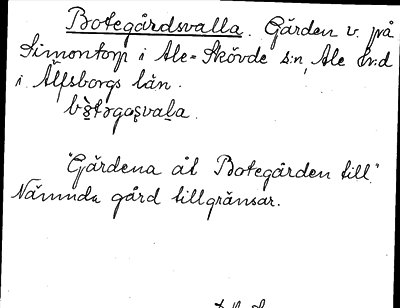 Botegårdsvalla. Gården v. på
Simontorp i Ale-Skövde s:n, Ale h:d
i Älfsborgs län.
bò̥təgoʂvaḷa.
"Gärdena åt Botegården till."
Nämnda gård tillgränsar.